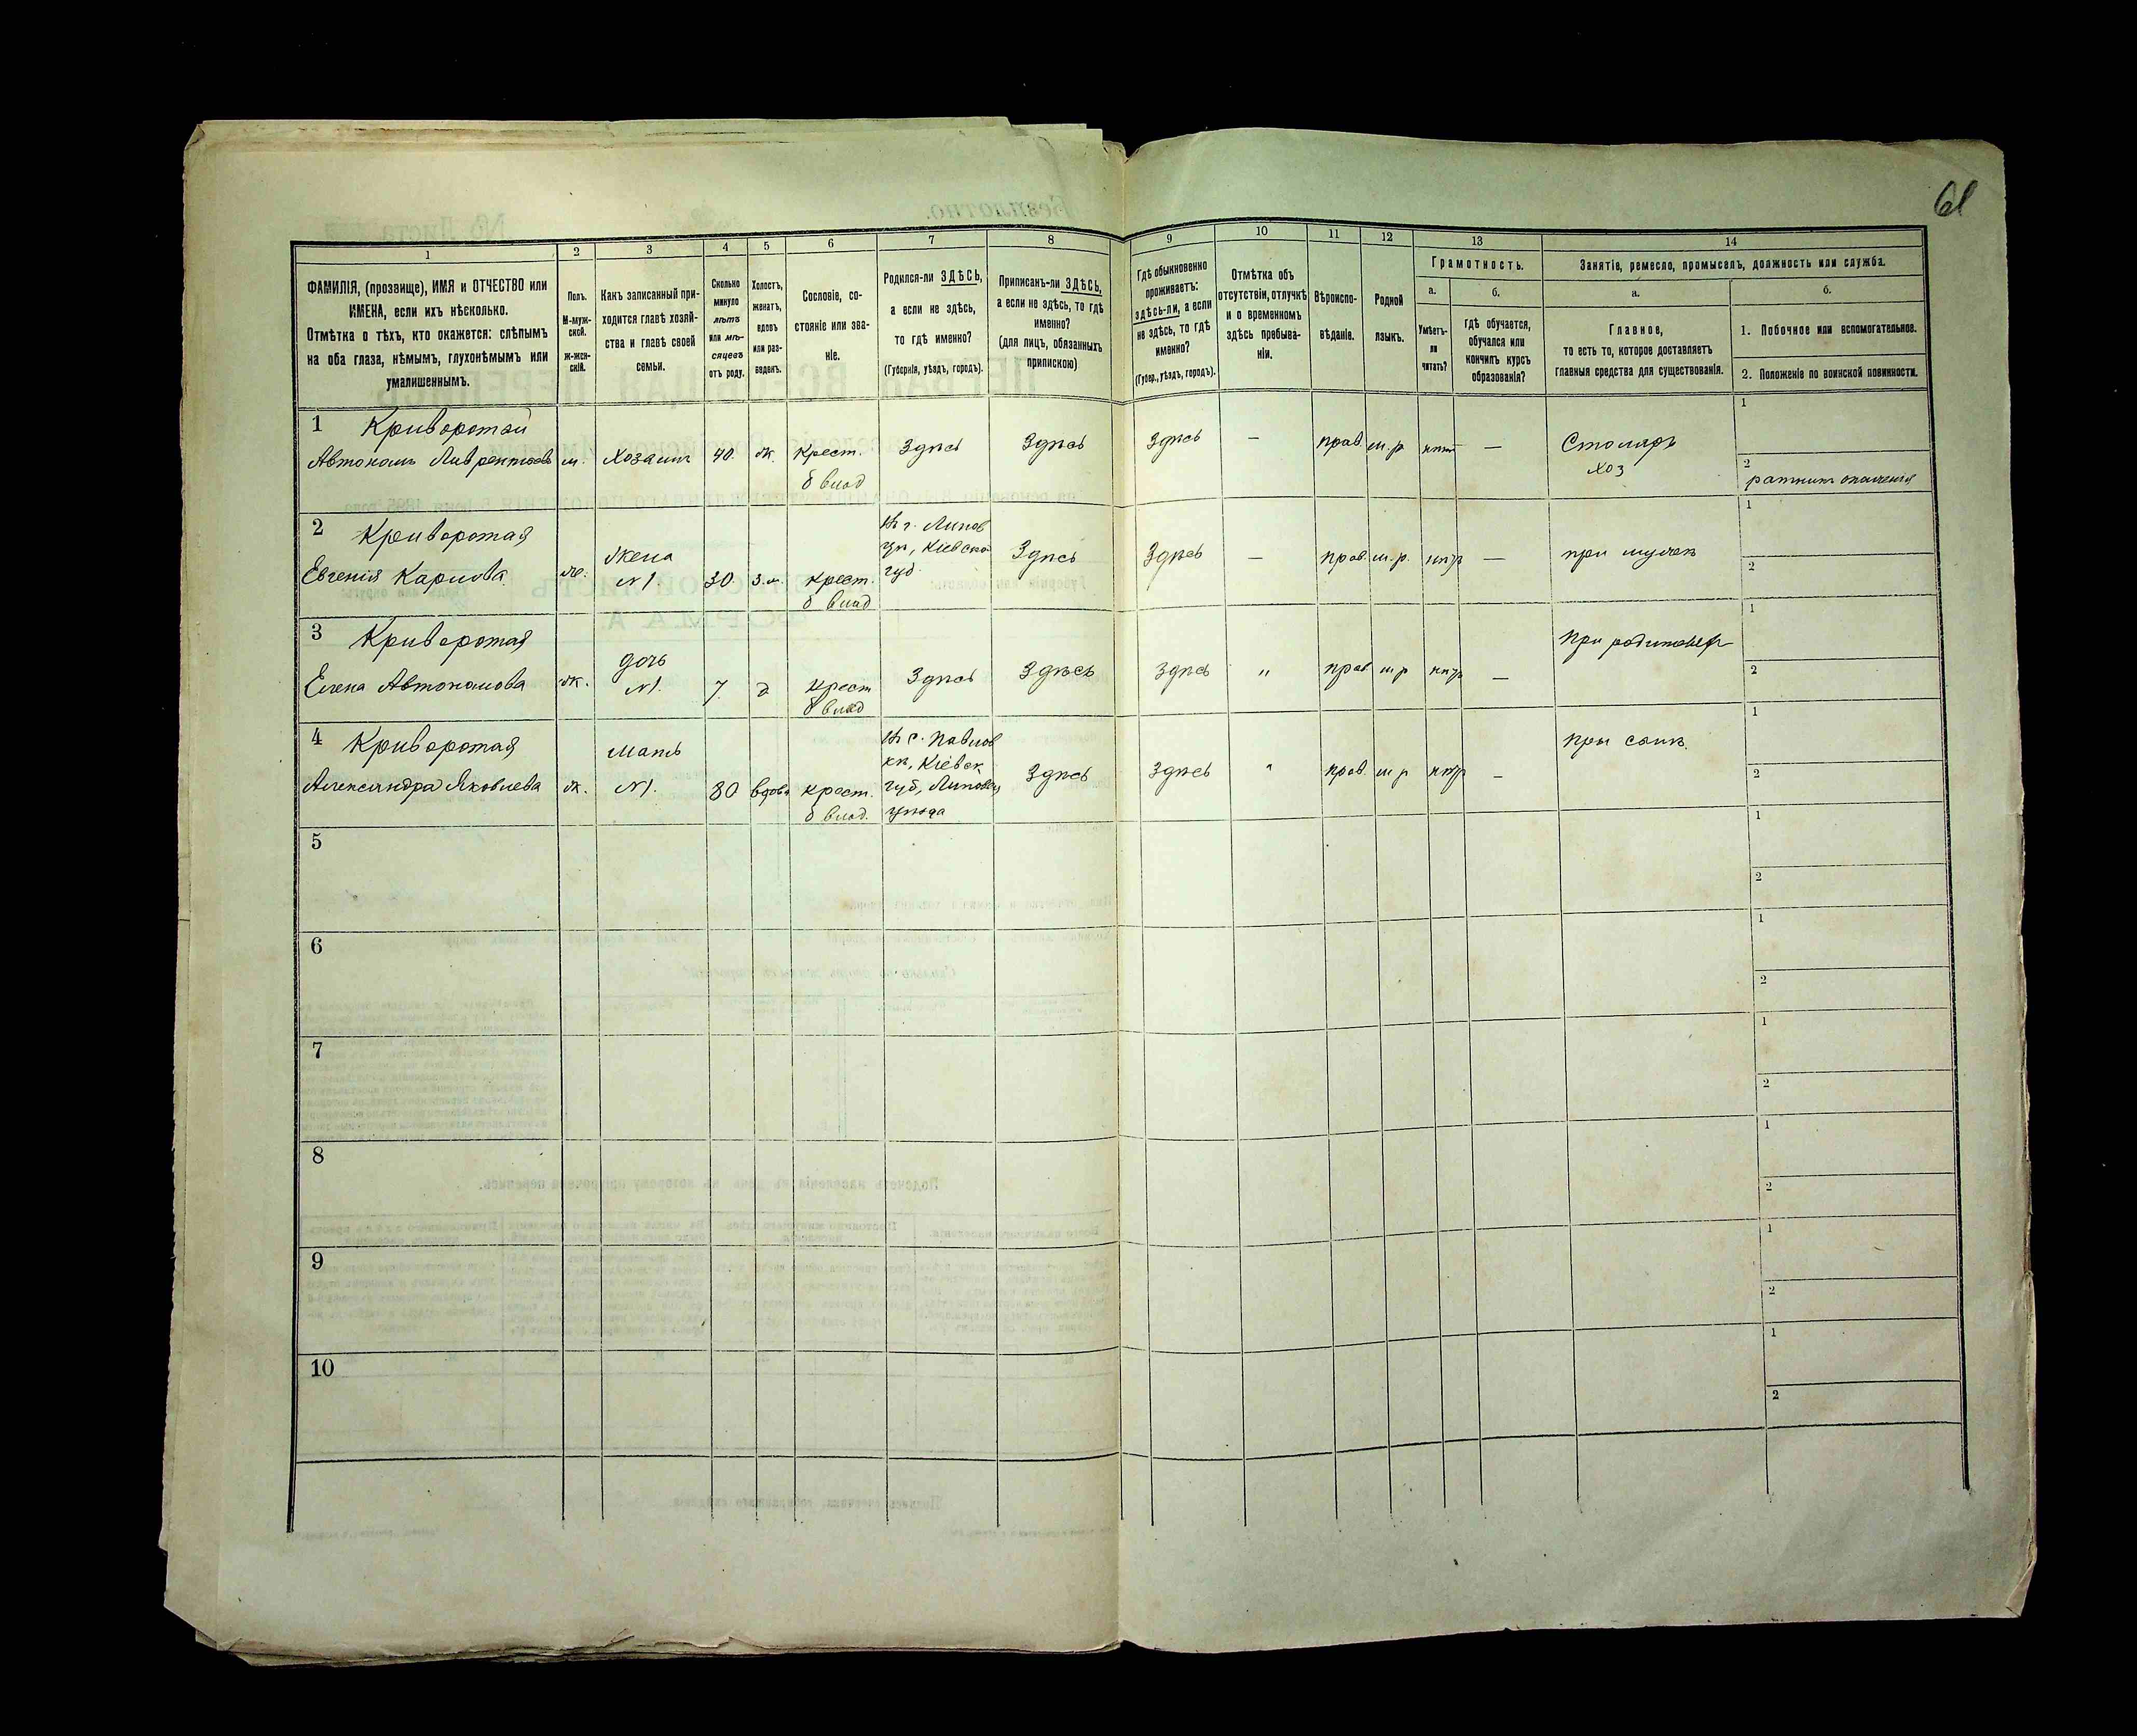 61
1 2 3 4 5 6 7 8 9 10 11 12 13 14
ФАМИЛІЯ, (прозвище), ИМЯ и ОТЧЕСТВО или
ИМЕНА, если ихъ нѣсколько.
Отмѣтка о тѣхъ, кто окажется: слѣпымъ
на оба глаза, нѣмымъ, глухонѣмымъ или
умалишеннымъ.
Полъ.
М-муж-
ской.
Ж-жен-
скій.
Какъ записанный при-
ходится главѣ хозяй-
ства и главѣ своей
семьи.
Сколько
минуло
лѣтъ
или мѣ-
сяцевъ
отъ роду.
Холостъ,
женатъ,
вдовъ
или раз-
веденъ.
Сословіе, со-
стояніе или зва-
ніе.
Родился-ли ЗДѢСЬ,
а если не здѣсь,
то гдѣ именно?
(Губернія, уѣздъ, городъ).
Приписанъ-ли ЗДѢСЬ,
а если не здѣсь, то гдѣ
именно?
(для лицъ, обязанныхъ
припискою)
Гдѣ обыкновенно
проживаетъ:
здѣсь-ли, а если
не здѣсь, то гдѣ
именно?
(Губер., уѣздъ, городъ).
Отмѣтка объ
отсутствіи, отлучкѣ
и о временномъ
здѣсь пребыва-
ніи.
Вѣроиспо-
вѣданіе.
Родной
языкъ.
Грамотность.
а.
Умѣетъ-
ли
читать?
б.
гдѣ обучается,
обучался или
кончилъ курсъ
образованія?
Занятіе, ремесло, промыселъ, должность или служба.
а.
Главное,
то есть то, которое доставляетъ
главныя средства для существованія.
б.
1. Побочное или вспомогательное.
2. Положеніе по воинской повинности.
1 Криворотый
Автономъ Лаврентьевъ м. Хозаинъ 40. ж. Крест.
б влад
Здѣсь Здѣсь Здѣсь — прав. м.р. нѣтъ —
Столяръ
хоз
1
2
ратникъ ополченія
2 Криворотая
Евгенія Карпова ж.
Жена
№1. 30 з.м. крест.
б влад
Здѣсь Здѣсь — прав. м.р. нѣтъ — при мужѣ
1
2
3 Криворотая
Елена Автономова ж.
дочь
№1. 7. д крест
б влад
Здѣсь Здѣсь здѣсь " прав. м р нѣтъ —
1
2
4 Криворотая
Александра Яковлева ж.
мать
№1. 80 вдова крест.
б влад.
Здѣсь Здѣсь " прав. м р нѣтъ —
при сынѣ.
1
2
5
1
2
6
1
2
7
1
2
8
1
2
9
1
2
10
1
2